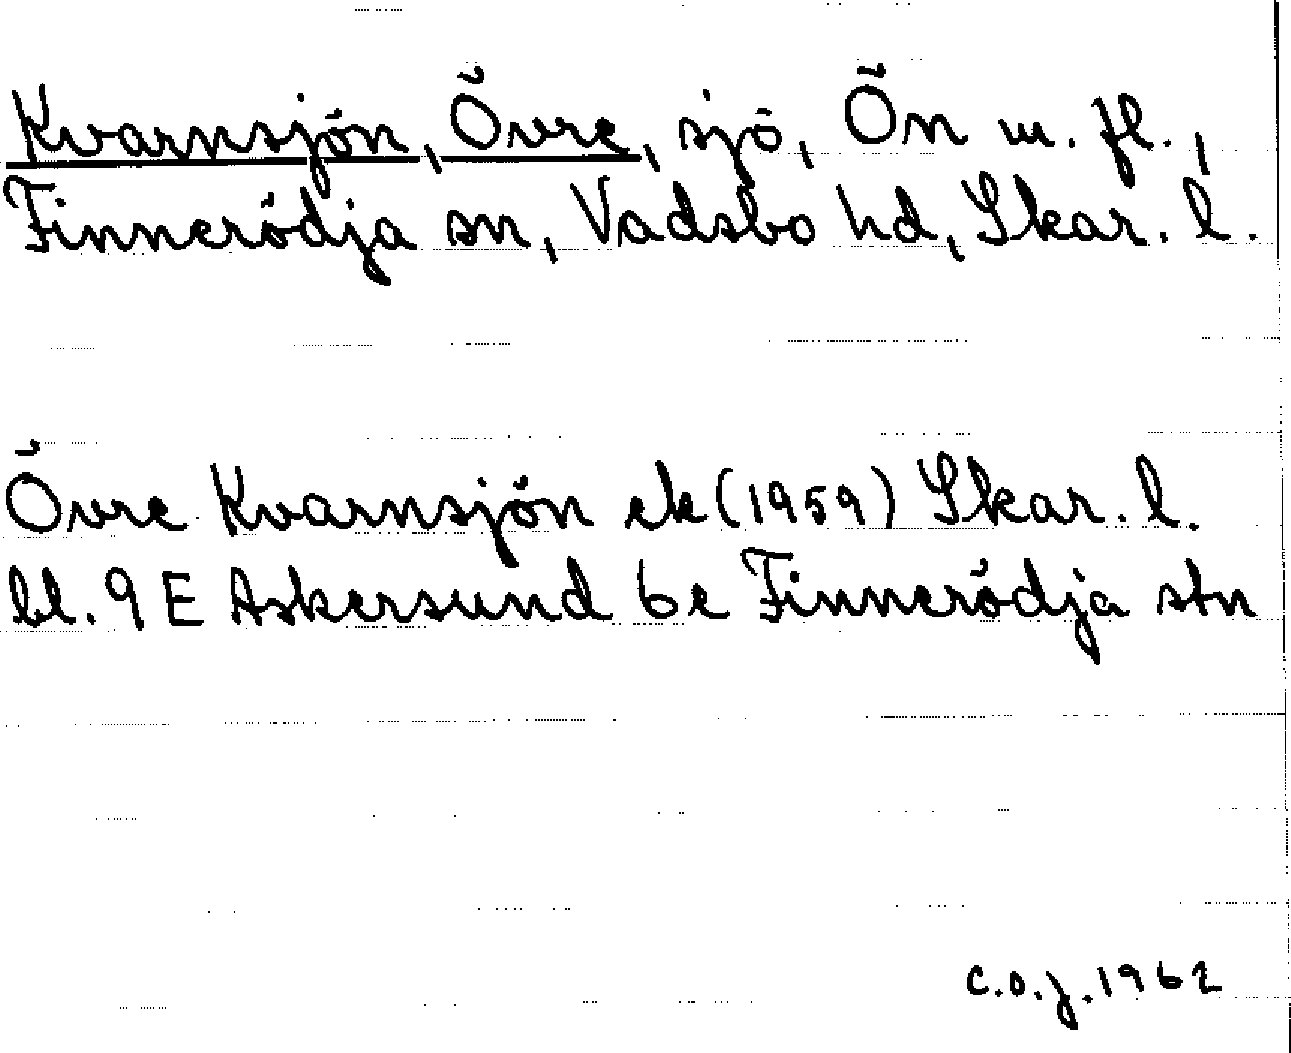 Kvarnsjön, Övre, sjö, Ön m. fl.,
Finnerödja sn, Vadsbo hd, Skar. l.
Övre Kvarnsjön ek (1959) Skar. l.
bl. 9 E Askersund 6e Finnerödja stn
C.O.J. 1962